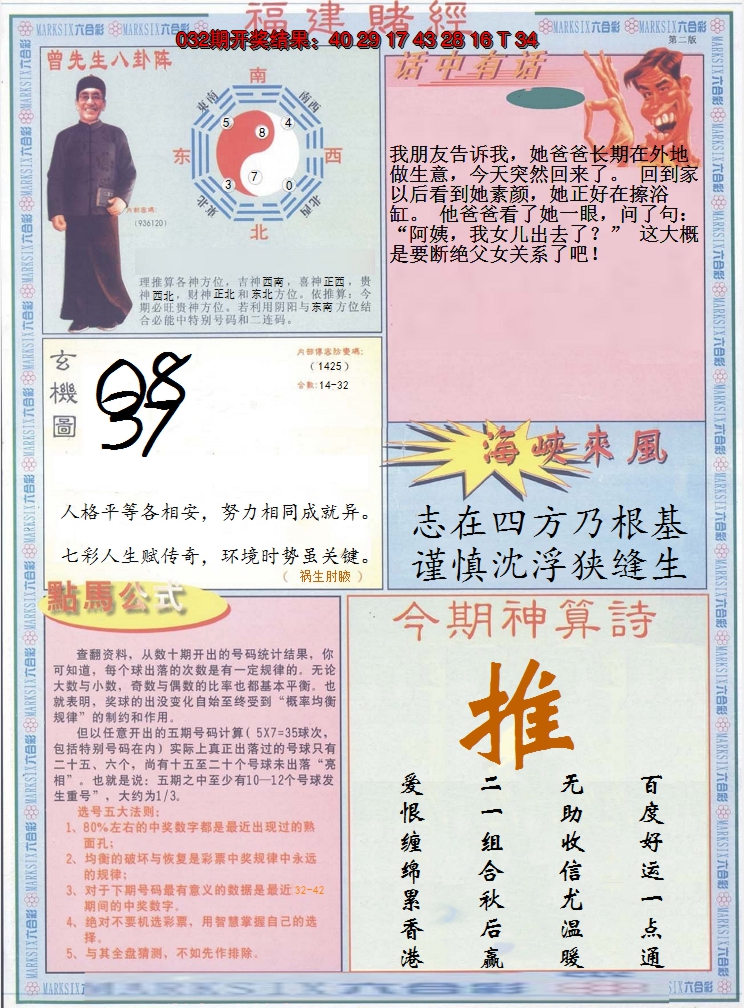 福建賭經
032期开奖结果：40 29 17 43 28 16 T 34
第二版
MARKSIX六合彩
曾先生八卦阵
南
东南
西南
5
8
4
东
西
3
7
0
东北
西北
北
内部密码:
(936120)
理推算各神方位，吉神西南，喜神正西，贵
神西北，财神正北和东北方位。依推算：今
期必旺贵神方位。若利用阴阳与东南方位结
合必能中特别号码和二连码。
话中有话
我朋友告诉我，她爸爸长期在外地
做生意，今天突然回来了。 回到家
以后看到她素颜，她正好在擦浴
缸。 他爸爸看了她一眼，问了句：
“阿姨，我女儿出去了？” 这大概
是要断绝父女关系了吧！
玄機圖
08
37
(1425)
合数:14-32
人格平等各相安，努力相同成就异。
七彩人生赋传奇，环境时势虽关键。
（ 祸生肘腋 ）
海峽來風
志在四方乃根基
谨慎沈浮狭缝生
點馬公式
查翻资料，从数十期开出的号码统计结果，你
可知道，每个球出落的次数是有一定规律的。无论
大数与小数，奇数与偶数的比率也都基本平衡。也
就表明，奖球的出没变化自始至终受到“概率均衡
规律”的制约和作用。
但以任意开出的五期号码计算( 5X7=35球次，
包括特别号码在内) 实际上真正出落过的号球只有
二十五、六个，尚有十五至二十个号球未出落“亮
相”。也就是说：五期之中至少有10—12个号球发
生重号”，大约为1/3。
选号五大法则：
1、80%左右的中奖数字都是最近出现过的熟
面孔；
2、均衡的破坏与恢复是彩票中奖规律中永远
的规律；
3、对于下期号码最有意义的数据是最近32-42
期间的中奖数字。
4、绝对不要机选彩票，用智慧掌握自己的选
择。
5、与其全盘猜测，不如先作排除。
今期神算詩
推
百度好运一点通
无助收信尤温暖
二一组合秋后赢
爱恨缠绵累香港